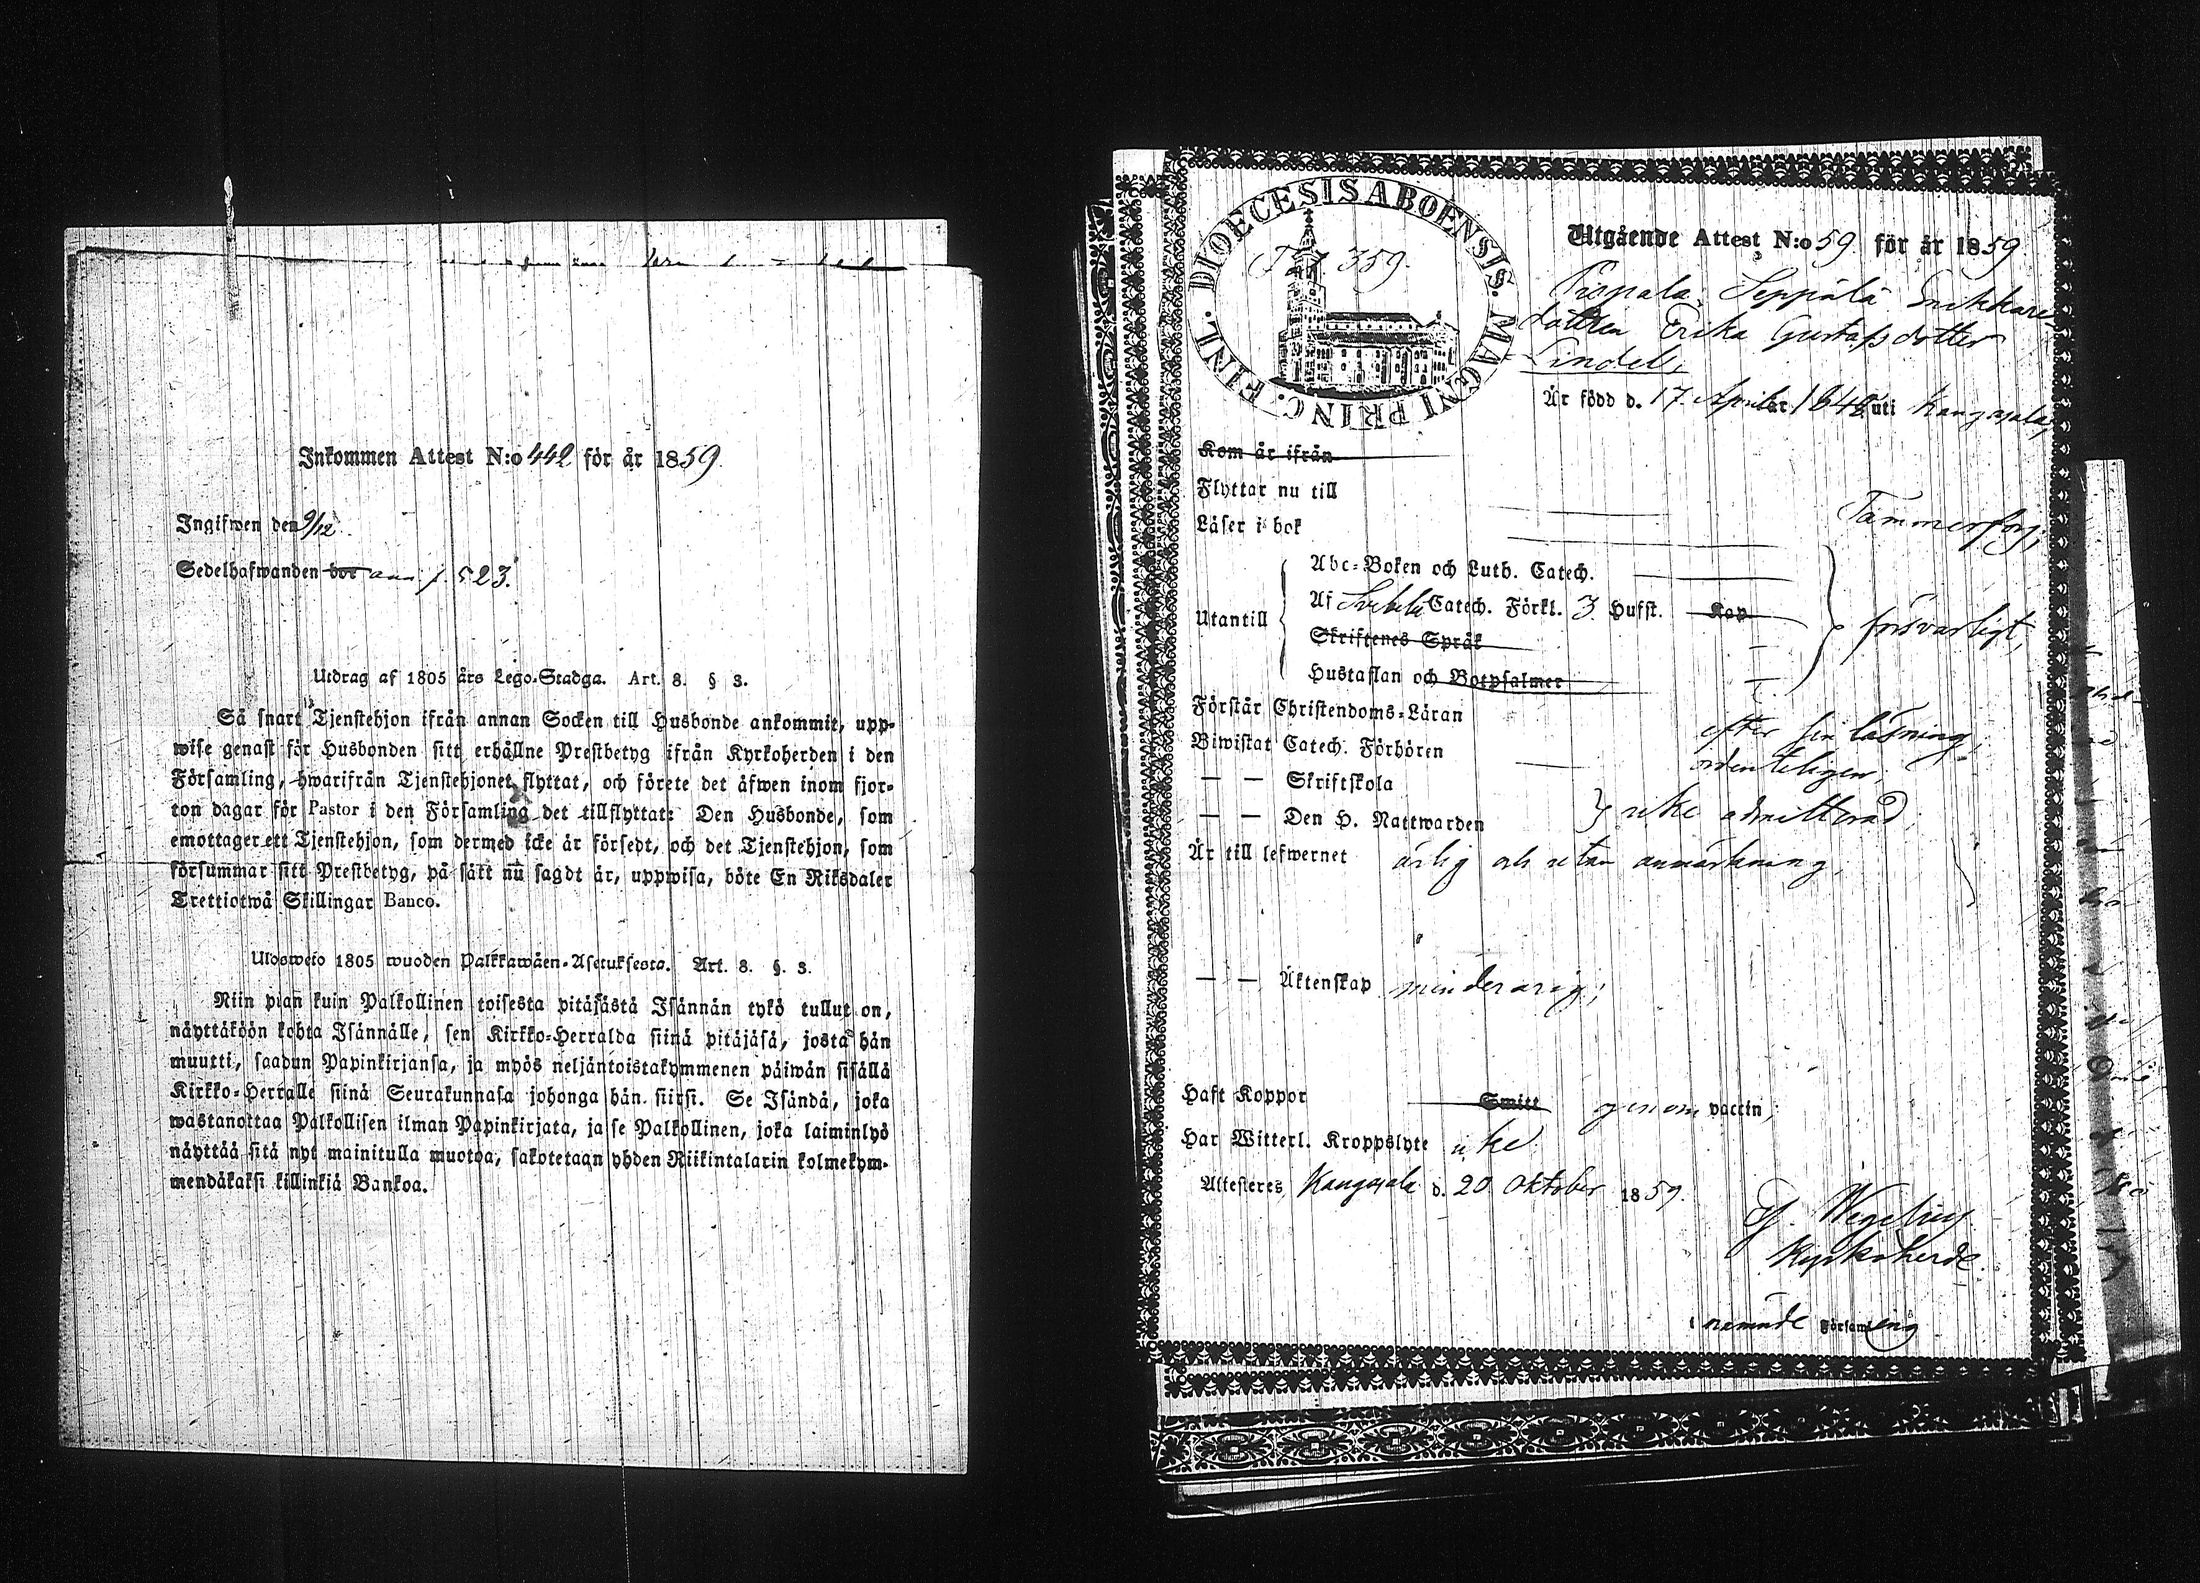 Inkommen Attest N:o 442 för år 1859.
Ingifwen den 9/12.
Sedelhafwanden bor ann. p. 523.
Utdrag af 1805 års Lego-Stadga. Art. 8. § 3.
Så snart Tjenstehjon ifrån annan Socken till Husbonde ankommit, upp-
wise genast för Husbonden sitt erhållne Prestbetyg ifrån Kyrkoherden i den
Församling, hwarifrån Tjenstehjonet flyttat, och förete det äfwen inom fjor-
ton dagar för Pastor i den Församling det tillflyttat: Den Husbonde, som
emottager ett Tjenstehjon, som dermed icke är försedt, och det Tjenstehjon, som
försummar sitt Prestbetyg, på sätt nu sagdt är, uppwisa, böte En Riksdaler
Trettiotwå Skillingar Banco.
Ulosweto 1805 wuoden Palkkawäen-Asetuksesta. Art. 8. §. 3.
Niin pian kuin Palkollinen toisesta pitäjästä Isännän tykö tullut on,
näyttäköön kohta Isännälle, sen Kirkko-Herralda siinä pitäjäsä, josta hän
muutti, saadun Papinkirjansa, ja myös neljäntoistakymmenen päiwän sisällä
Kirkko-Herralle siinä Seurakunnasa johonga hän siirsi. Se Isändä, joka
wastanottaa Palkollisen ilman Papinkirjata, ja se Palkollinen, joka laiminlyö
näyttää sitä nyt mainitulla muotoa, sakotetaan yhden Riikintalarin kolmekym-
mendäkaksi killinkiä Bankoa.
DIOECESIS ABOENSIS. MAGNI PRINC. FINL.
359.
Utgående Attest N:o 59 för år 1859
Seppälä
dottren Erika Gustafsdotter
Lindel,
Är född d. 17 April år 1848 uti Kangasala,
Kom år ifrån
Flyttar nu till Tammerfors,
Läser i bok
Utantill
Abc-Boken och Luth. Catech.
Af Svebelii Catech. Förkl. 3 Hufst. Kap
Skriftenes Språk
försvarligt,
Hustaflan och Botpsalmer
Förstår Christendoms-Läran efter sin läsning,
Biwistat Catech. Förhören ordenteligen,
— — Skriftskola
— — Den H. Nattwarden icke admitterad,
Är till lefwernet ärlig och utan anmärkning,
— — Äktenskap minderårig;
Haft Koppor Smitt genom vaccin;
Har Witterl. Kroppslyte icke
Attesteres, Kangasala d. 20 Oktober 1859.
Wegelius
Kyrkoherde
i nämnde Församling